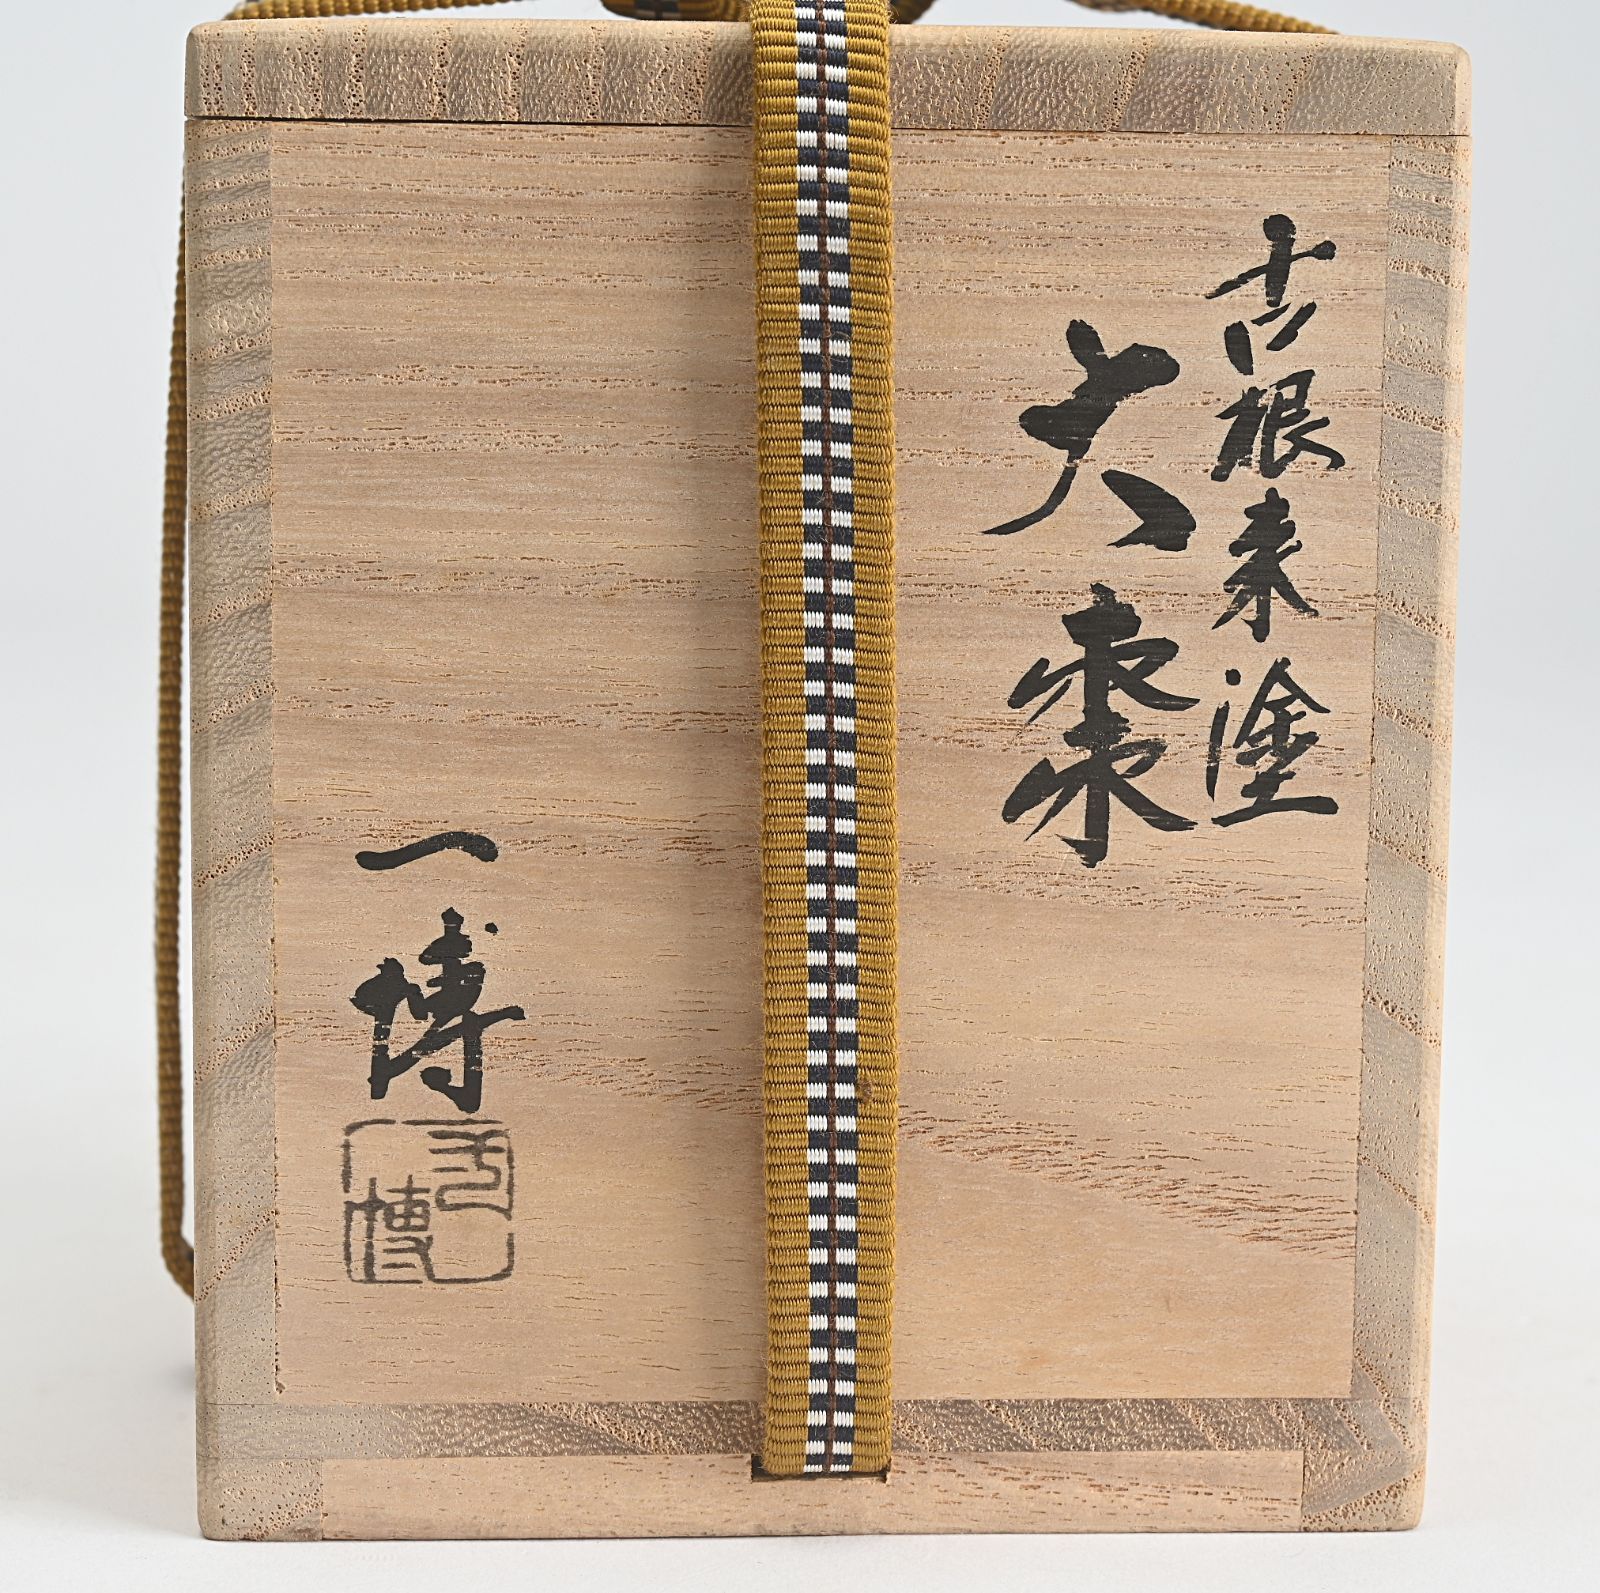 古根来塗
大棗
一博